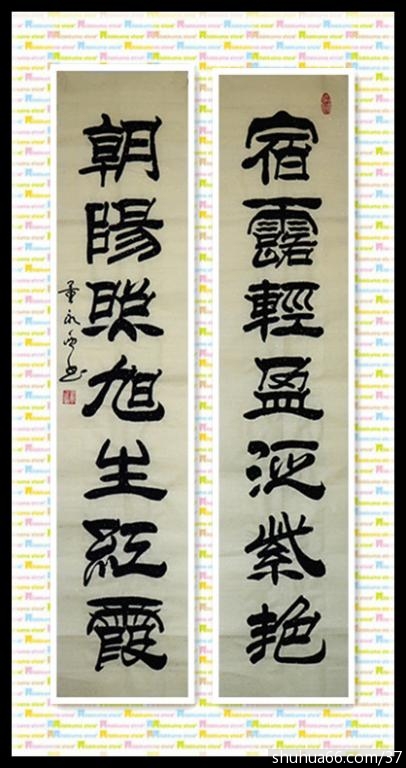 宿露輕盈泛紫艳
朝陽照旭生紅霞
shuhua66.com/37